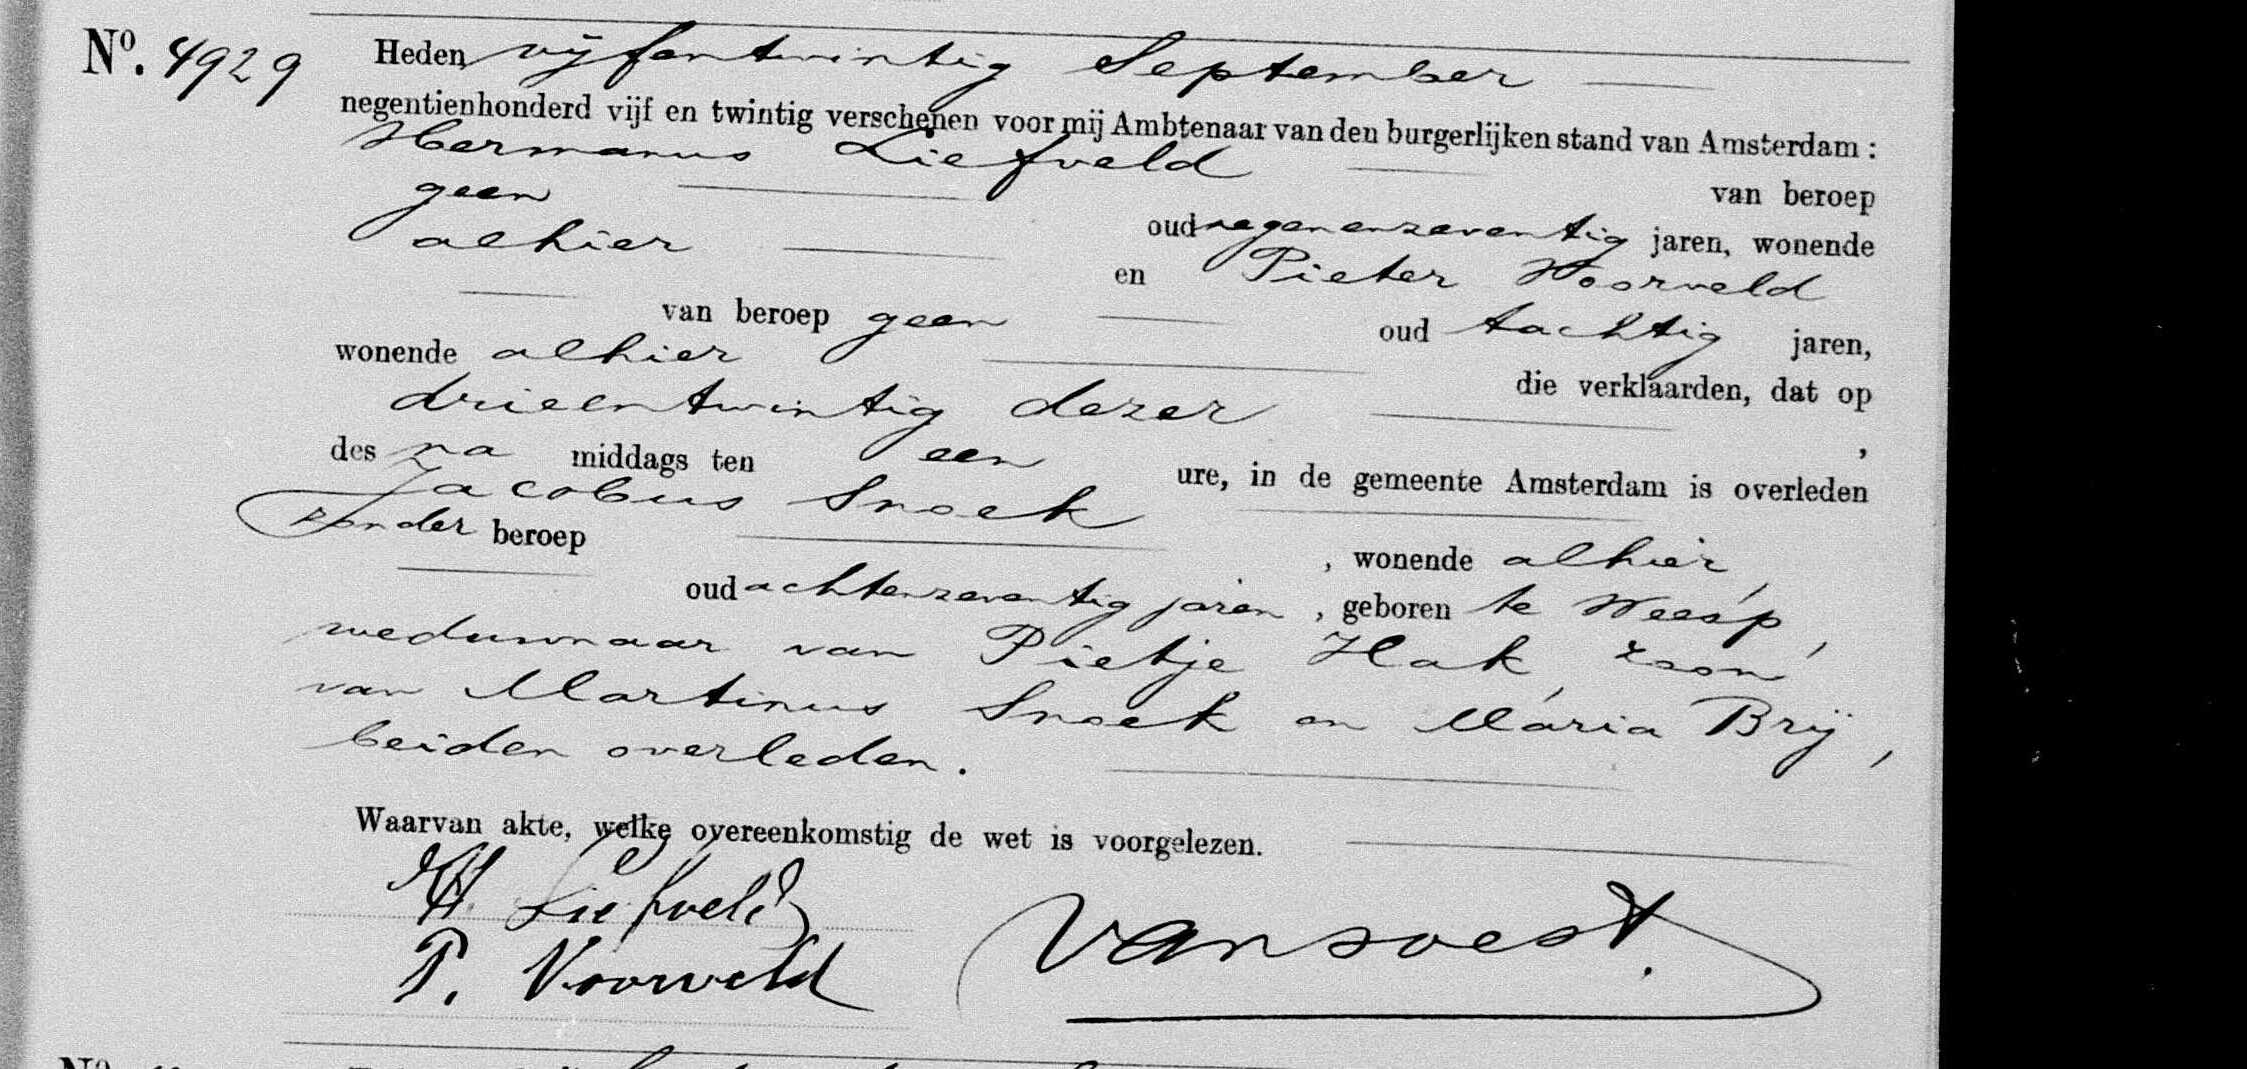 No. 4929 Heden vijfentwintig September
negentienhonderd vijf en twintig verschenen voor mij Ambtenaar van den burgerlijken stand van Amsterdam :
Hermanus Liefveld
van beroep
geen oud negenenzeventig jaren, wonende
alhier en Pieter Voorveld
van beroep geen oud tachtig jaren,
wonende alhier die verklaarden, dat op
drieentwintig dezer ,
des na middags ten een ure, in de gemeente Amsterdam is overleden
Jacobus Snoek
zonder beroep , wonende alhier,
oud achtenzeventig jaren , geboren te Weesp,
weduwnaar van Pietje Hak, zoon
van Martinus Snoek en Maria Brij,
beiden overleden.
Waarvan akte, welke overeenkomstig de wet is voorgelezen.
H. Liefveld
P. Voorveld
van Soest.